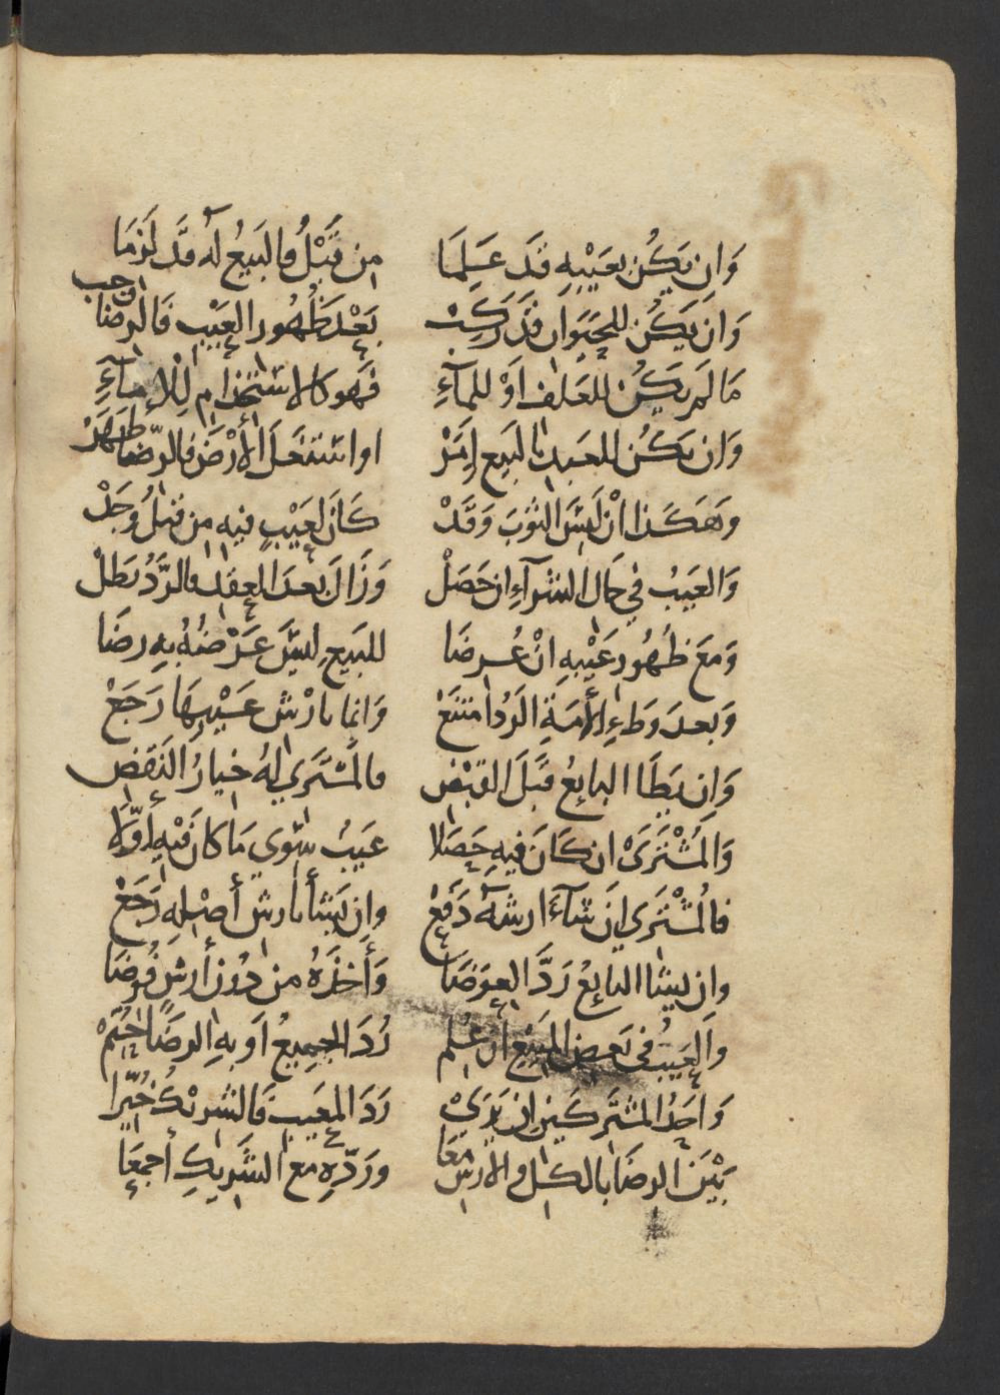 وَان يَكُن بعَيْبِهِ قَدَ عَلِمَا من قَبْلُ فالبَيعُ لهُ قدَ لَزمَا
وَان يَكُن للحَيَوانِ قدَ رَكِبْ بَعْدَ ظُهُورِ العَيْبِ فَالرضَا وجب
مَا لَم يَكُن للعَلفِ اوْ للمآءِ فهوَ كالاستخدام لِلْإمآءِ
وَان يَكُن للعبد بالبَيع اِمَرْ او استَغَلَ الأرْضَ فالرّضا ظهَرْ
وهَكَذا انْ لَبِسَ الثوبَ وَقَدْ كَانَ لعَيْبٍ فيهِ من قبْلُ وَجَدْ
وَالعَيبُ في حَال الشرآءِ ان حَصَلْ وَزَالَ بعدَ العقدِ فالرَّدُ بَطَلْ
وَمعَ ظُهُورِ عَيْبِهِ انْ عُرِضَا للبَيعِ ليسَ عَرْضُهُ بِهِ رضَا
وَبعدَ وَطءِ الأمَةِ الرَدُ امتنَعْ وَانما بارْش عَيْبِهَا رَجَعْ
وَان يَطَا البايعُ قَبلَ القبْضِ فالمُشتَري لهُ خيارُ النَقضِ
وَالمُشْتَرَىْ ان كَانَ فيهِ حَصَلا عَيبُ سِوي مَا كانَ فيْهِ أوّلا
فالُمشْتَري اِن شآءَ ارشهُ دَفعْ وان يَشأ بارش أصْلِهِ رَجَعْ
وان يشا البايعُ رَدَّ العِوَضَا وَأخذَهُ من دُون أرشٍ فُرِضَا
وَالعَيبُ في بَعضِ المَبِيْعِ ان عُلِم رُدَ الجميعُ اَو بهِ الرضَا حُتِمْ
وَاحَدُ المشتركَينِ ان يَرَىْ رَدَ المعِيبِ فالشريكُ خُيّرا
بَيْنَ الرضَا بالكل والارش مَعَا وَرَدّهِ مع الشَريكِ أجمعَا